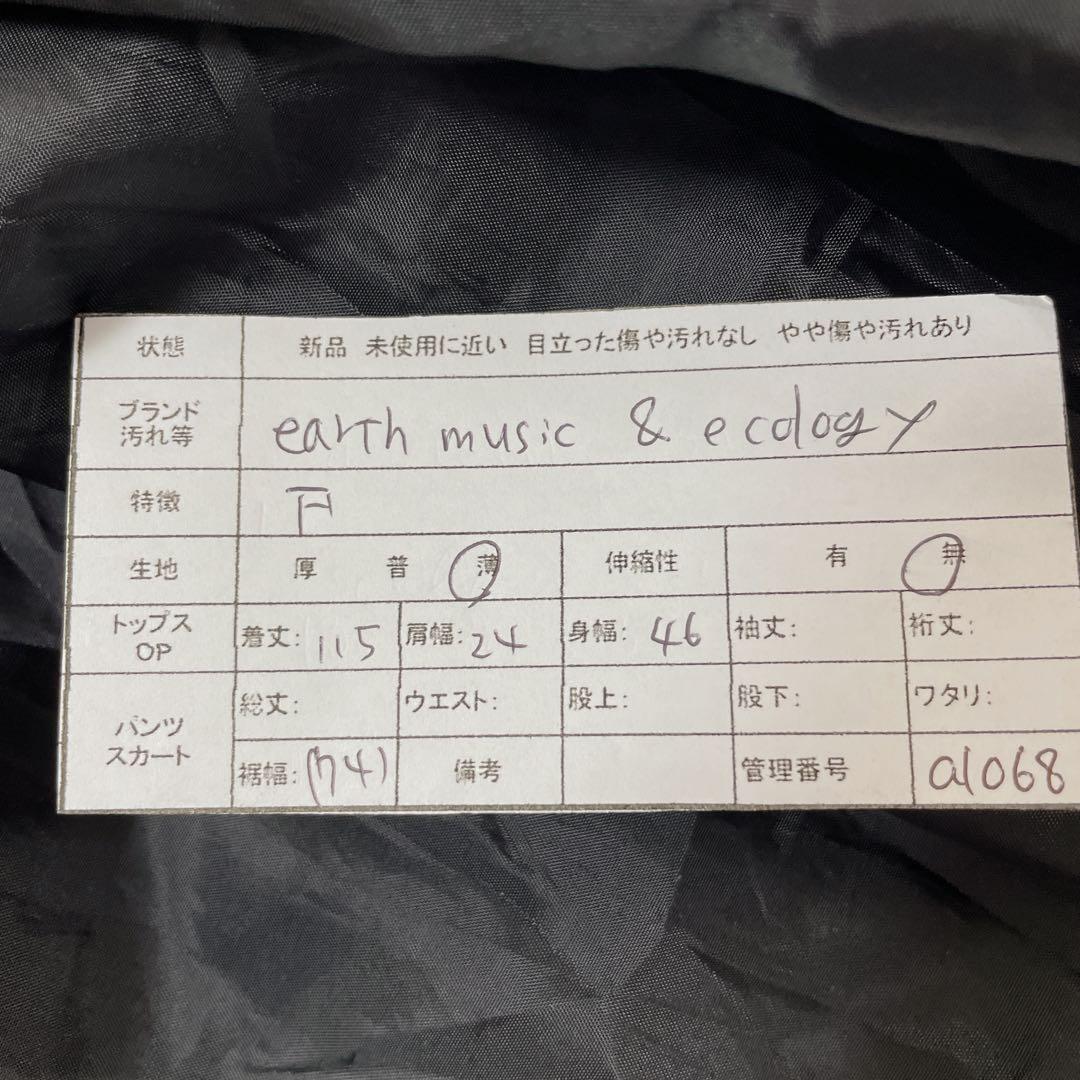 状態 新品 未使用に近い 目立った傷や汚れなし やや傷や汚れあり
ブランド
汚れ等 earth music & ecology
特徴 F
生地 厚 普 薄 伸縮性 有 無
トップス
OP 着丈: 115 肩幅: 24 身幅: 46 袖丈: 裄丈:
パンツ
スカート 総丈: ウエスト: 股上: 股下: ワタリ:
裾幅: (74) 備考 管理番号 a1068